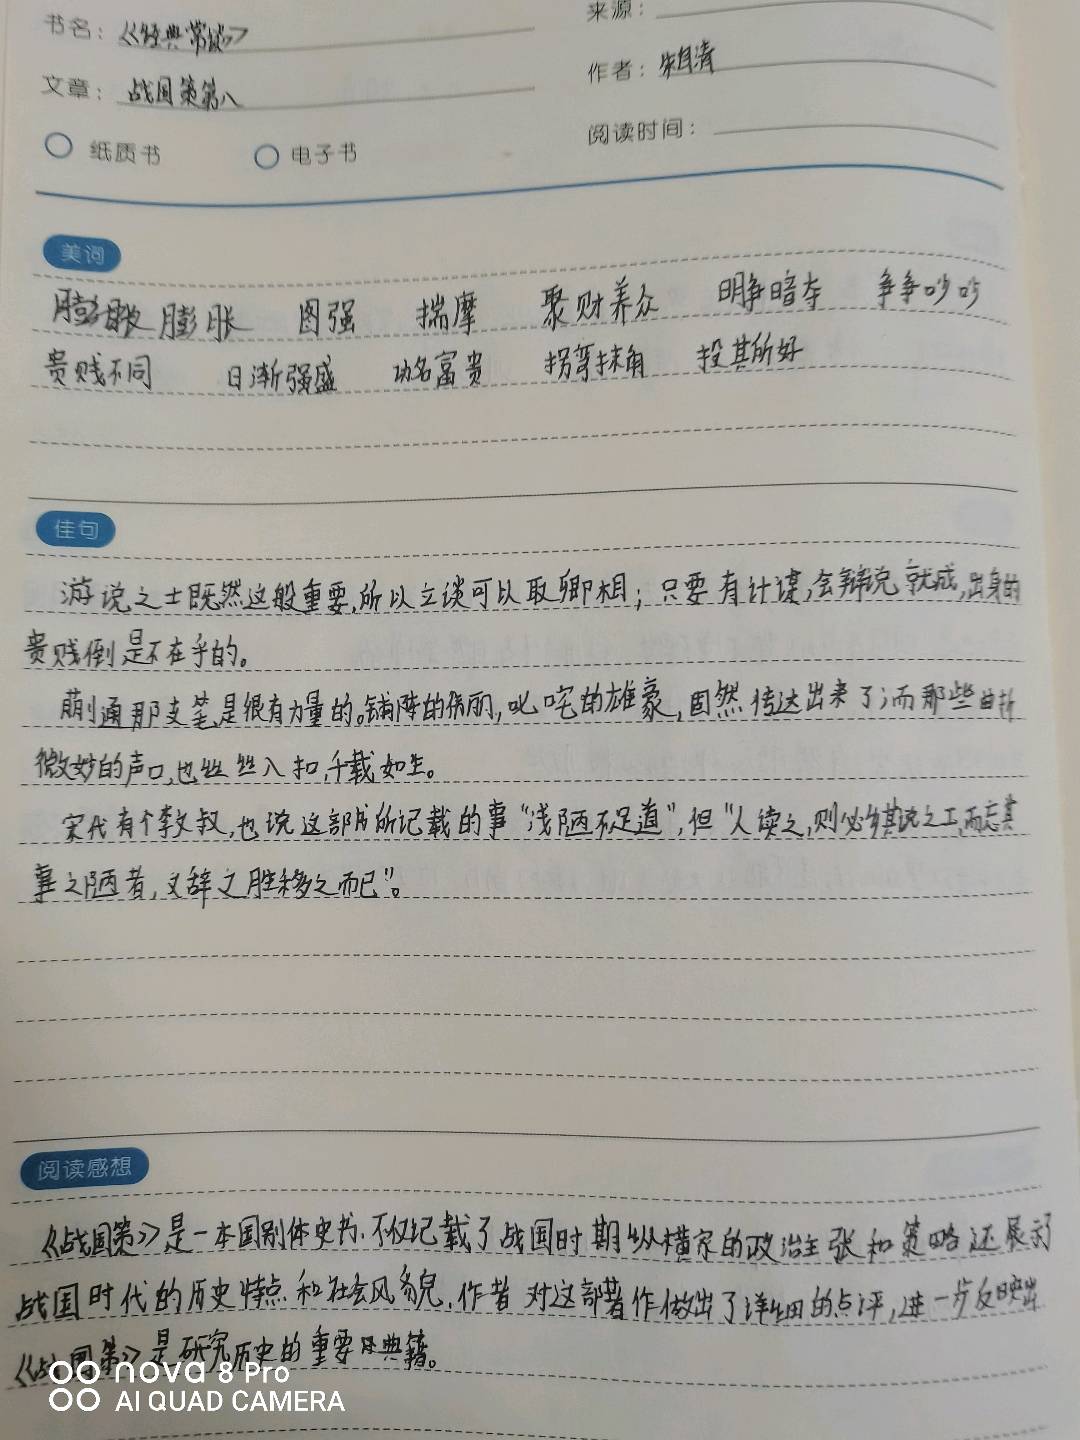 书名：《经典常谈》
来源：
文章：战国策第八
作者：朱自清
纸质书
电子书
阅读时间：
美词
膨胀 图强 揣摩 聚财养众 明争暗夺 争争吵吵
贵贱不同 日渐强盛 功名富贵 拐弯抹角 投其所好
佳句
游说之士既然这般重要，所以立谈可以取卿相；只要有计谋，会辩说就成，出身的
贵贱倒是不在乎的。
蒯通那支笔是很有力量的。铺陈的伟丽，叱咤的雄豪，固然传达出来了；而那些曲折
微妙的声口，也丝丝入扣，千载如生。
宋代有个李文叔，也说这部书所记载的事“浅陋不足道”，但“人读之，则必乡其说之工，而忘其
事之陋者，文辞之胜移之而已”。
阅读感想
《战国策》是一本国别体史书，不仅记载了战国时期纵横家的政治主张和策略还展示了
战国时代的历史特点和社会风貌，作者对这部著作做出了详细的点评，进一步反映出
《战国策》是研究历史的重要典籍。
nova 8 Pro
AI QUAD CAMERA